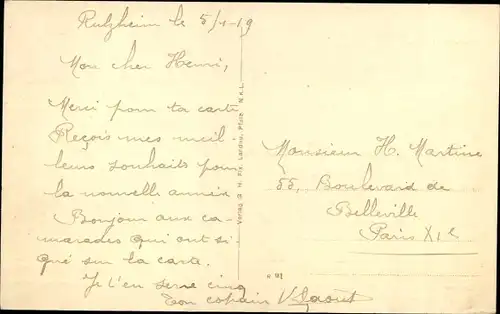 Rulzheim le 5/1-19
Mon cher Henri,
Merci pour ta carte
Reçois mes meil
leurs souhaits pour
la nouvelle année
Bonjour aux ca-
marades qui ont si-
gué sur la carte.
Je t'en serre cinq
Ton copain
Verlag G. H. Fr. Landau, Pfalz
N. e. L.
Monsieur H. Martine
55, Boulevard de
Belleville
Paris XIe
91